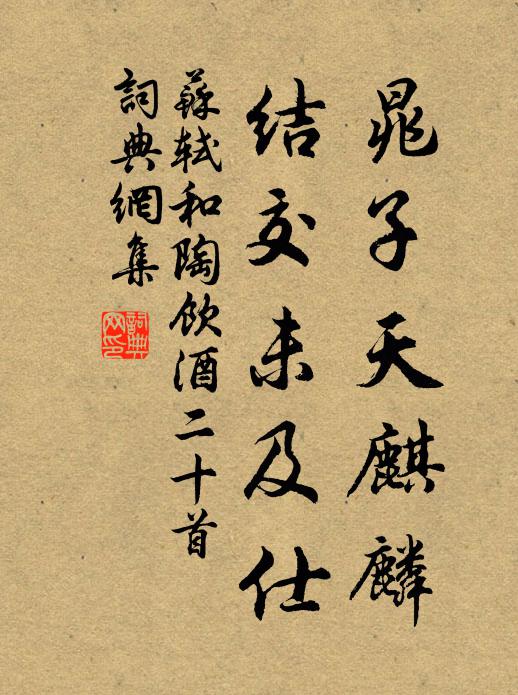 晁子天麒麟
結交未及仕
蘇軾和陶飲酒二十首
詞典網集
詞典網印